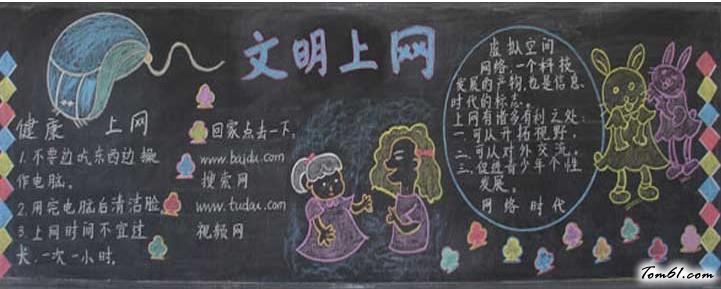 文明上网
健康 上网
1.不要边吃东西边操
作电脑。
2.用完电脑后清洁脸。
3.上网时间不宜过
长,一次一小时。
回家点去一下。
www.baidu.com
搜索网
www.tudou.com
视频网
虚拟空间
网络,一个科技
发展的产物,也是信息
时代的标志。
上网有诸多有利之处:
一.可以开拓视野,
二.可以对外交流。
三.促进青少年个性
发展。
网络时代
Tom61.com